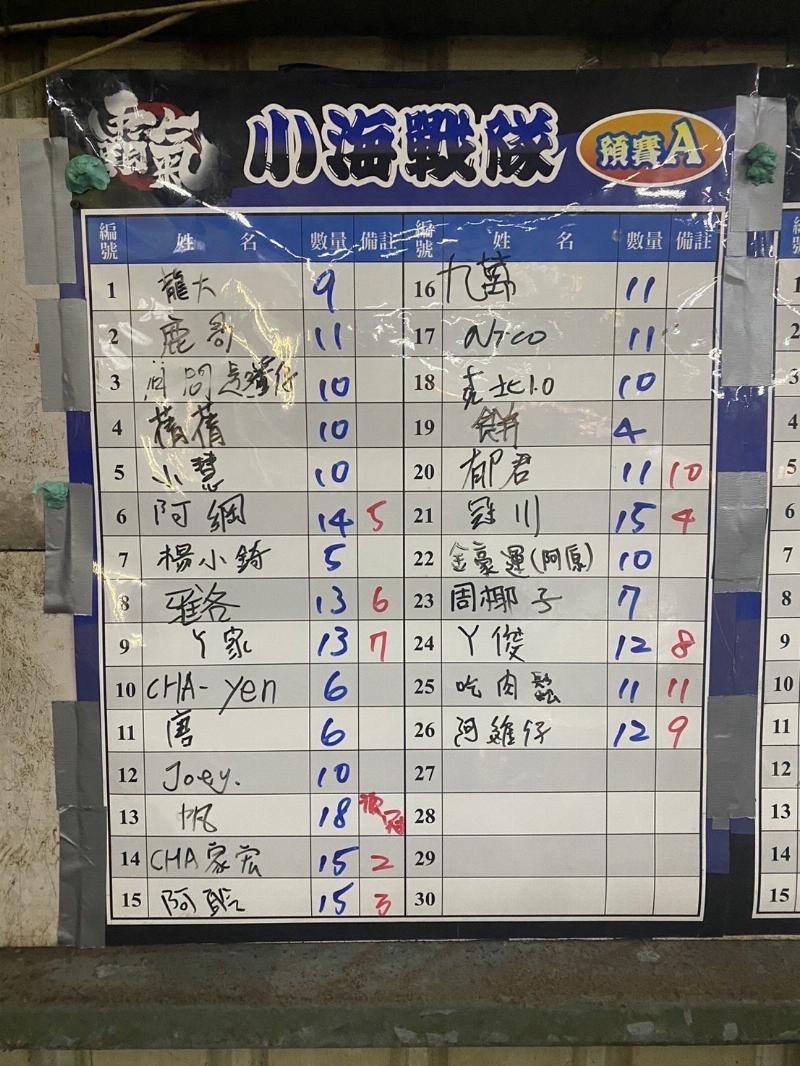 霸氣
小海戰隊
預賽A
編號 姓名 數量 備註 編號 姓名 數量 備註
1 龍大 9 16 九萬 11
2 鹿哥 11 17 NICO 11
3 10 18 克北10 10
4 蒨蒨 10 19 餅 4
5 小慧 10 20 郁君 11 10
6 阿綱 14 5 21 冠川 15 4
7 楊小錡 5 22 金豪運(阿原) 10
8 雅洛 13 6 23 周椰子 7
9 丫家 13 7 24 丫傑 12 8
10 CHA-yen 6 25 吃肉鬆 11 11
11 唐 6 26 阿雞仔 12 9
12 Joey. 10 27
13 帆 18 28
14 CHA家宏 15 2 29
15 阿 15 3 30
1
2
3
4
5
6
7
8
9
10
11
12
13
14
15